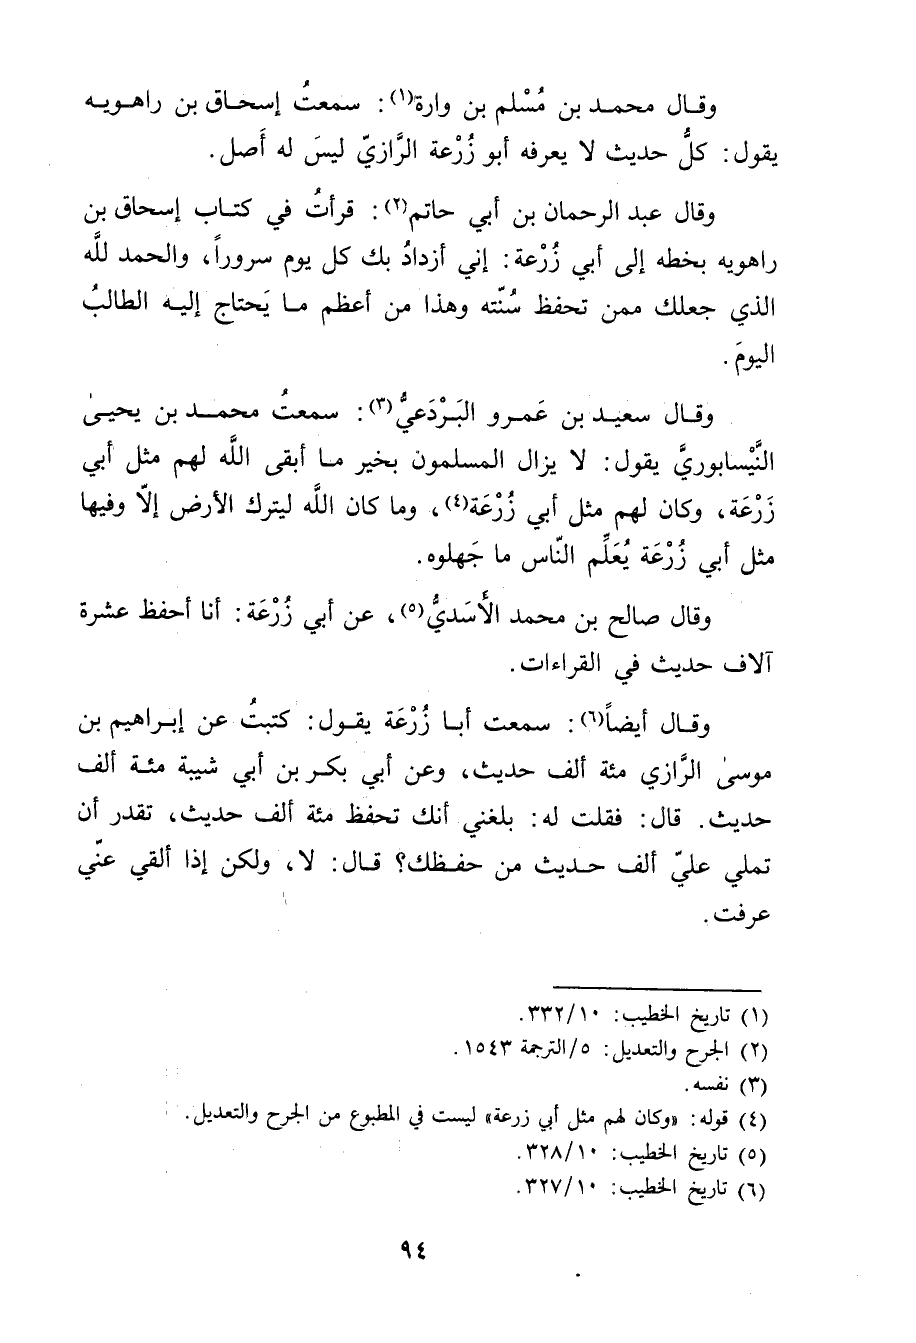 وقال محمد بن مُسْلم بن وارة(١): سمعتُ إسحاق بن راهويه
يقول: كلُّ حديث لا يعرفه أبو زُرْعة الرَّازيّ ليسَ له أَصل.
وقال عبد الرحمان بن أبي حاتم(٢): قرأتُ في كتاب إسحاق بن
راهويه بخطه إلى أبي زُرْعة: إني أزدادُ بك كل يوم سروراً، والحمد للَّه
الذي جعلك ممن تحفظ سُنّته وهذا من أعظم ما يَحتاج إليه الطالبُ
اليومَ.
وقال سعيد بن عَمرو البَرْدَعيُّ(٣): سمعتُ محمد بن يحيىٰ
النَّيْسابوريَّ يقول: لا يزال المسلمون بخير ما أبقى اللَّه لهم مثل أبي
زَرْعة، وكان لهم مثل أبي زُرْعَة(٤)، وما كان اللَّه ليترك الأرض إلّا وفيها
مثل أبي زُرْعَة يُعَلِّم النّاس ما جَهلوه.
وقال صالح بن محمد الأَسَديُّ(٥)، عن أبي زُرْعَة: أنا أحفظ عشرة
آلاف حديث في القراءات.
وقال أيضاً(٦): سمعت أبا زُرْعَة يقول: كتبتُ عن إبراهيم بن
موسىٰ الرَّازي مئة ألف حديث، وعن أبي بكر بن أبي شيبة مئة ألف
حديث. قال: فقلت له: بلغني أنك تحفظ مئة ألف حديث، تقدر أن
تملي عليّ ألف حديث من حفظك؟ قال: لا، ولكن إذا ألقي عنّي
عرفت.
(١) تاريخ الخطيب: ٣٣٢/١٠.
(٢) الجرح والتعديل: ٥/الترجمة ١٥٤٣.
(٣) نفسه.
(٤) قوله: «وكان لهم مثل أبي زرعة» ليست في المطبوع من الجرح والتعديل.
(٥) تاريخ الخطيب: ٣٢٨/١٠.
(٦) تاريخ الخطيب: ٣٢٧/١٠.
٩٤